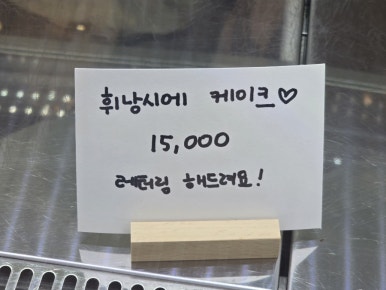 휘낭시에 케이크♡
15,000
레터링 해드려요!